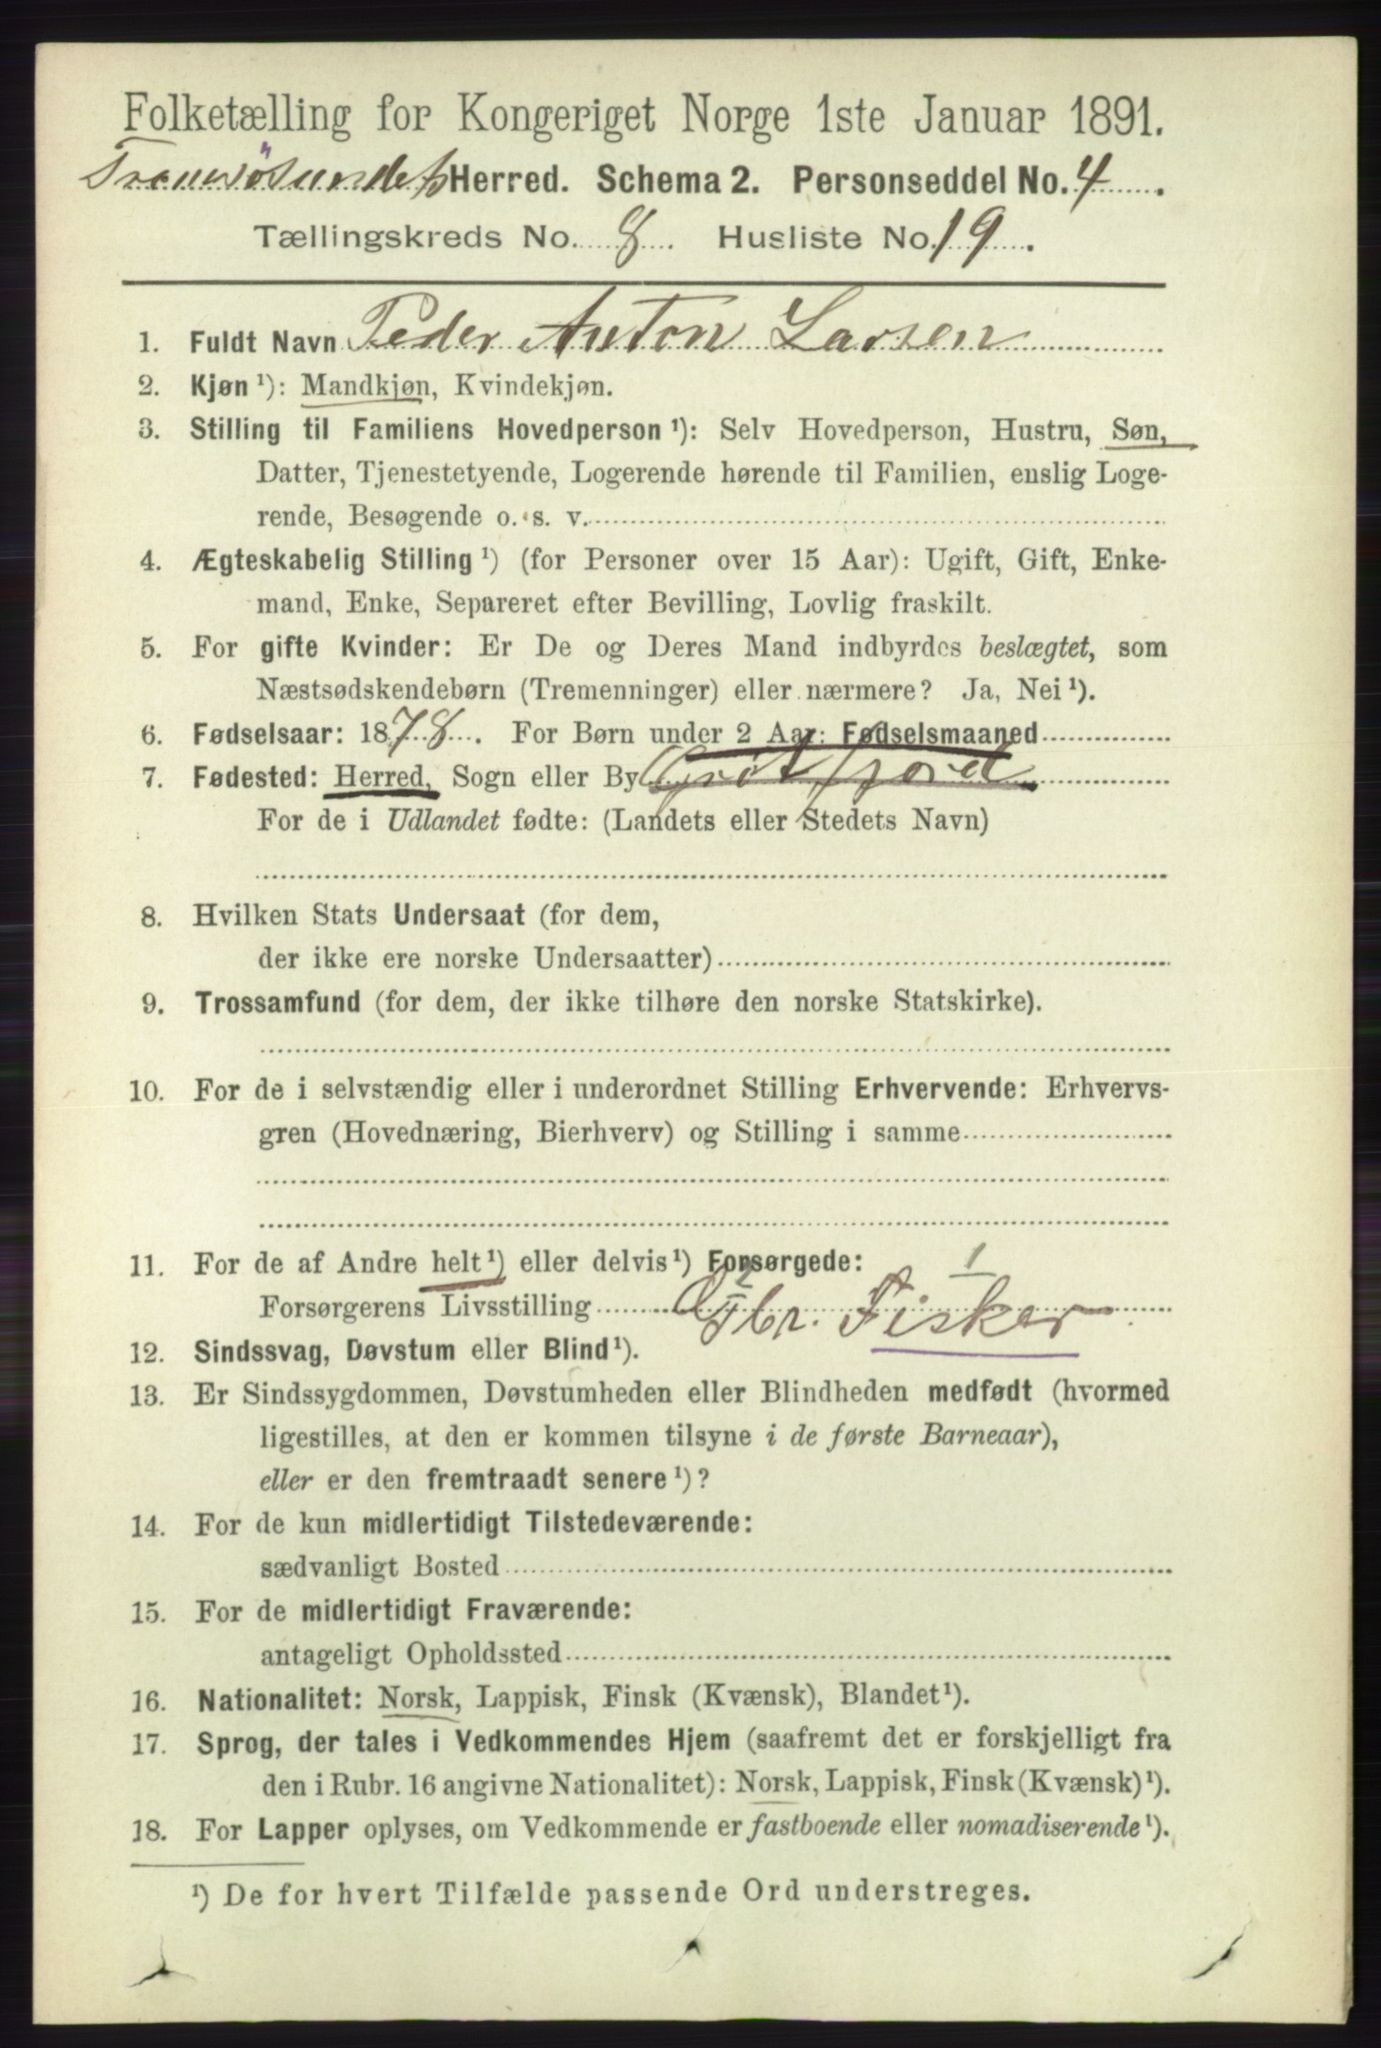 Folketælling for Kongeriget Norge 1ste Januar 1891.
Tromsøsundets Herred. Schema 2. Personseddel No. 4.
Tællingskreds No. 8. Husliste No. 19.
1. Fuldt Navn Peder Anton Larsen
2. Kjøn ¹): Mandkjøn, Kvindekjøn.
3. Stilling til Familiens Hovedperson ¹): Selv Hovedperson, Hustru, Søn,
Datter, Tjenestetyende, Logerende hørende til Familien, enslig Loge-
rende, Besøgende o. s. v.
4. Ægteskabelig Stilling ¹) (for Personer over 15 Aar): Ugift, Gift, Enke-
mand, Enke, Separeret efter Bevilling, Lovlig fraskilt.
5. For gifte Kvinder: Er De og Deres Mand indbyrdes beslægtet, som
Næstsødskendebørn (Tremenninger) eller nærmere? Ja, Nei ¹).
6. Fødselsaar: 1878. For Børn under 2 Aar: Fødselsmaaned
7. Fødested: Herred, Sogn eller By Grøtfjord
For de i Udlandet fødte: (Landets eller Stedets Navn)
8. Hvilken Stats Undersaat (for dem,
der ikke ere norske Undersaatter)
9. Trossamfund (for dem, der ikke tilhøre den norske Statskirke).
10. For de i selvstændig eller i underordnet Stilling Erhvervende: Erhvervs-
gren (Hovednæring, Bierhverv) og Stilling i samme
11. For de af Andre helt ¹) eller delvis ¹) Forsørgede:
2 1
Forsørgerens Livsstilling Gbr. Fisker
12. Sindssvag, Døvstum eller Blind ¹).
13. Er Sindssygdommen, Døvstumheden eller Blindheden medfødt (hvormed
ligestilles, at den er kommen tilsyne i de første Barneaar),
eller er den fremtraadt senere ¹)?
14. For de kun midlertidigt Tilstedeværende:
sædvanligt Bosted
15. For de midlertidigt Fraværende:
antageligt Opholdssted
16. Nationalitet: Norsk, Lappisk, Finsk (Kvænsk), Blandet ¹).
17. Sprog, der tales i Vedkommendes Hjem (saafremt det er forskjelligt fra
den i Rubr. 16 angivne Nationalitet): Norsk, Lappisk, Finsk (Kvænsk) ¹).
18. For Lapper oplyses, om Vedkommende er fastboende eller nomadiserende ¹).
¹) De for hvert Tilfælde passende Ord understreges.